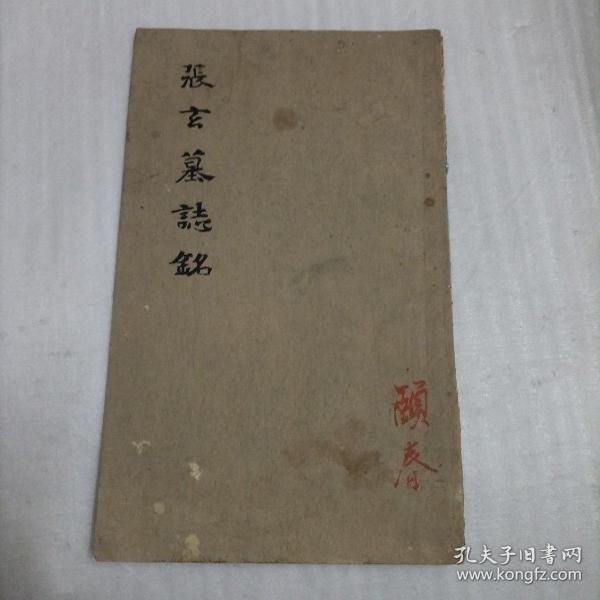 張玄墓誌銘
頤春
孔夫子旧书网
www.kongfz.com